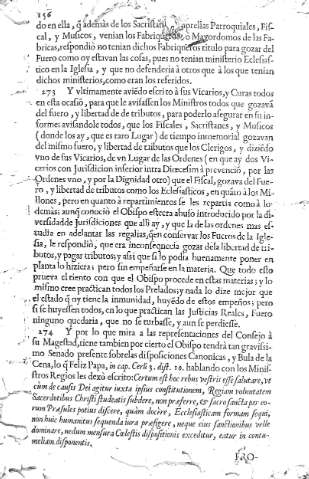 156
do en ella, q̃ además de los Sacristanes, o aprestas Parroquiales, Fis-
cal, y Musicos, venian los Fabriqueros, o Mayordomos de las Fa-
bricas, respondiò no tenian dichos Fabriqueros titulo para gozar del
Fuero como ey estavan las cosas, pues no tenian ministerio Eclesias-
tico en la Iglesia, y que no defenderia à otros que à los que tenian
dichos ministerios, como eran los referidos.
273 Y vltimamente aviẽdo escrito à sus Vicarios, y Curas todos
en esta ocasiõ, para que le avisassen los Ministros todos que gozavã
del fuero, y libertad de de tributos, para poderlo asegurar en su in-
formes avisandole todos, que los Fiscales, Sacristanes, y Musicos
(donde los ay, que es raro Lugar) de tiempo inmemorial gozavan
del mismo fuero, y libertad de tributos que los Clerigos, y diziẽdo
vno de sus Vicarios, de vn Lugar de las Ordenes (en que ay dos Vi-
carios con Jurisdicion inferior intra Diœcesim à prevenciõ, por las
Ordenes vno, y por la Dignidad otro) que el Fiscal, gozava del Fue-
ro, y libertad de tributos como los Eclesiasticos, en quãto à los Mi-
llones, pero en quanto à repartimientos se les repartia como à lo
demàs: aunq̃ conociò el Obispo este era abuso introducido por la di-
versidad de Jurisdiciones que alli ay, y que la de las ordenes mas es-
tudia en adelantar las regalias, q̃ en conservar los Fueros de la Igle-
sia, le respondiò, que era inconsequecia gozar dela libertad de tri-
butos, y pagar tributos y assi que si lo podia buenamente poner en
planta lo hiziera: pero sin empeñarse en la materia. Que todo esto
prueva el tiento con que el Obispo procede en estas materias y lo
mismo cree practican todos los Prelados; y nada lo dize mejor que
el estado q̃ oy tiene la inmunidad, huyẽdo de estos empeños; pero
si se huyessen todos, en lo que practican las Justicias Reales, Fuero
ninguno quedaria, que no se turbasse, y aun se perdiesse,
274 Y por lo que mira a las representaciones del Consejo à
su Magestad, tiene tambien por cierto el Obispo tendrà tan gravissi-
mo Senado presente sobre las disposiciones Canonicas, y Bula de la
Cena, lo q̃ Felix Papa, in cap. Certũ 3. dist. 10. hablando con los Minis-
tros Regios les dexò escrito: Certum est hoc rebus vestris esse salutare, vt
cum de causis Dei agitur iuxta ipsius constitutionem, Regiam voluntatem
Sacerdotibus Christi studeatis subdere, non præferre, & sacrosancta per eo-
rum Præsules potius discere, quàm docere, Ecclesiasticam formam sequi,
non huic humanitus sequenda iura præfigere, neque eius sanctionibus velle
dominare, nedum mensura Cœlestis dispositionis exceditur, eatur in contu-
meliam disponentis.
PRO-